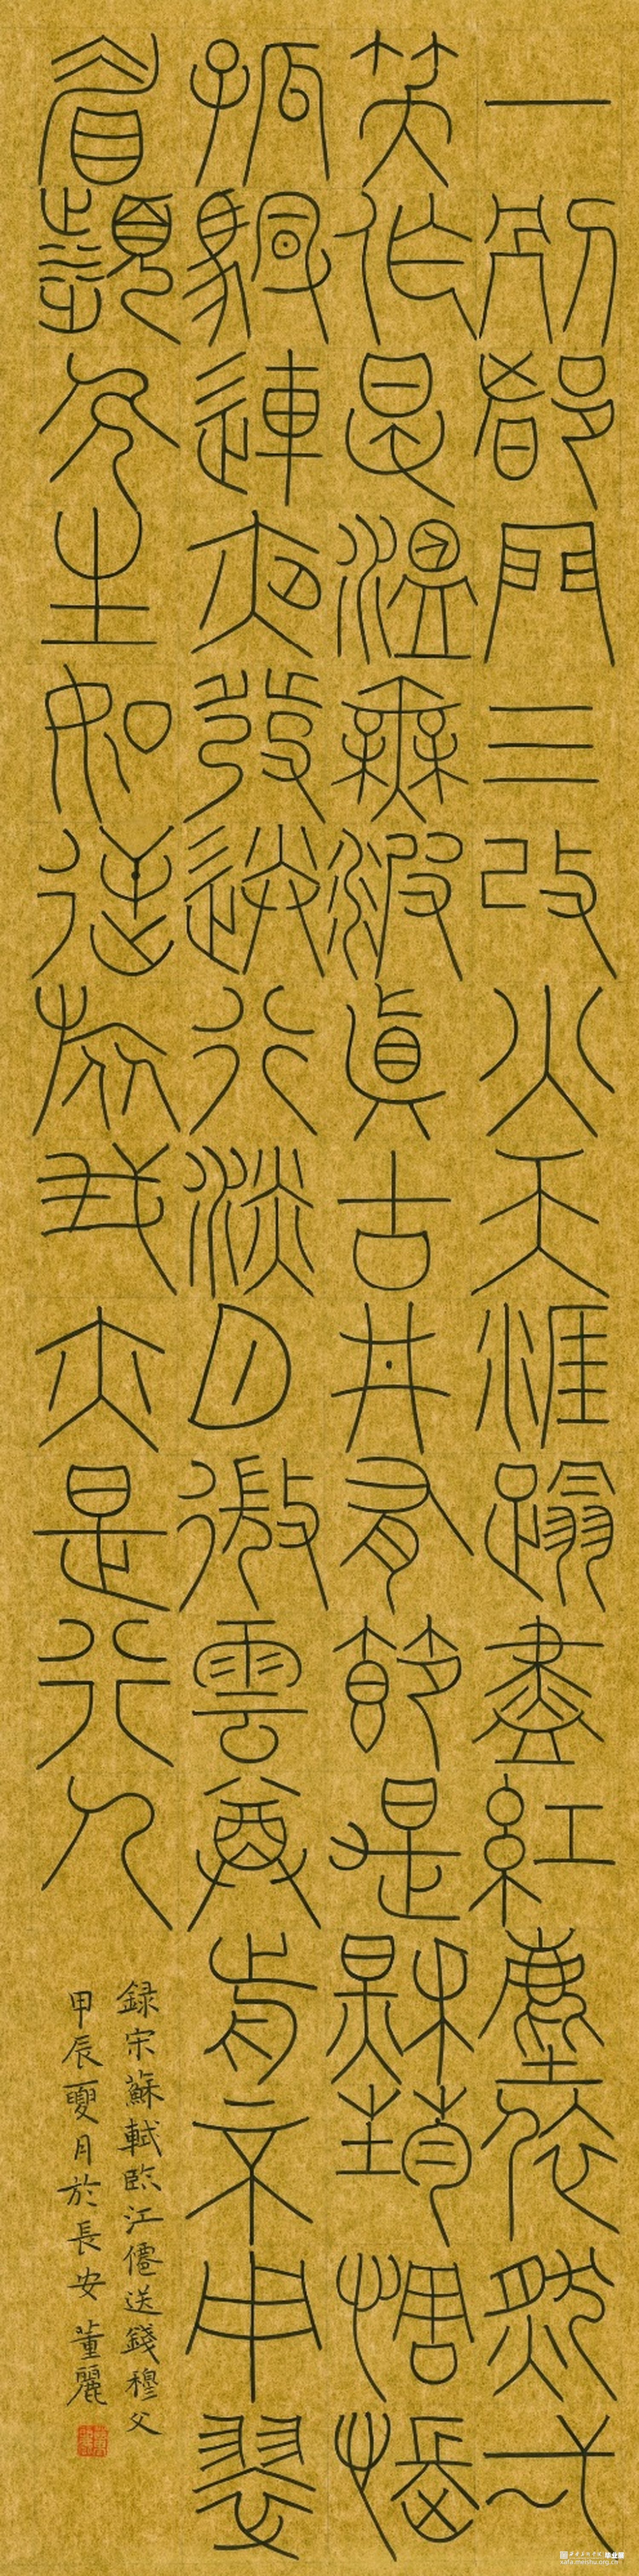 一別都門三改火天涯蹋盡紅塵依然弌
笑作春溫無波真古井有節是秋筠惆悵
孤颿連夜發送行淡月微雲尊前不用翠
眉顰人生如逆旅我亦是行人
録宋蘇軾臨江僊送錢穆父
甲辰夏月於長安 董麗
西安美术学院 毕业展
xafa.meishu.org.cn